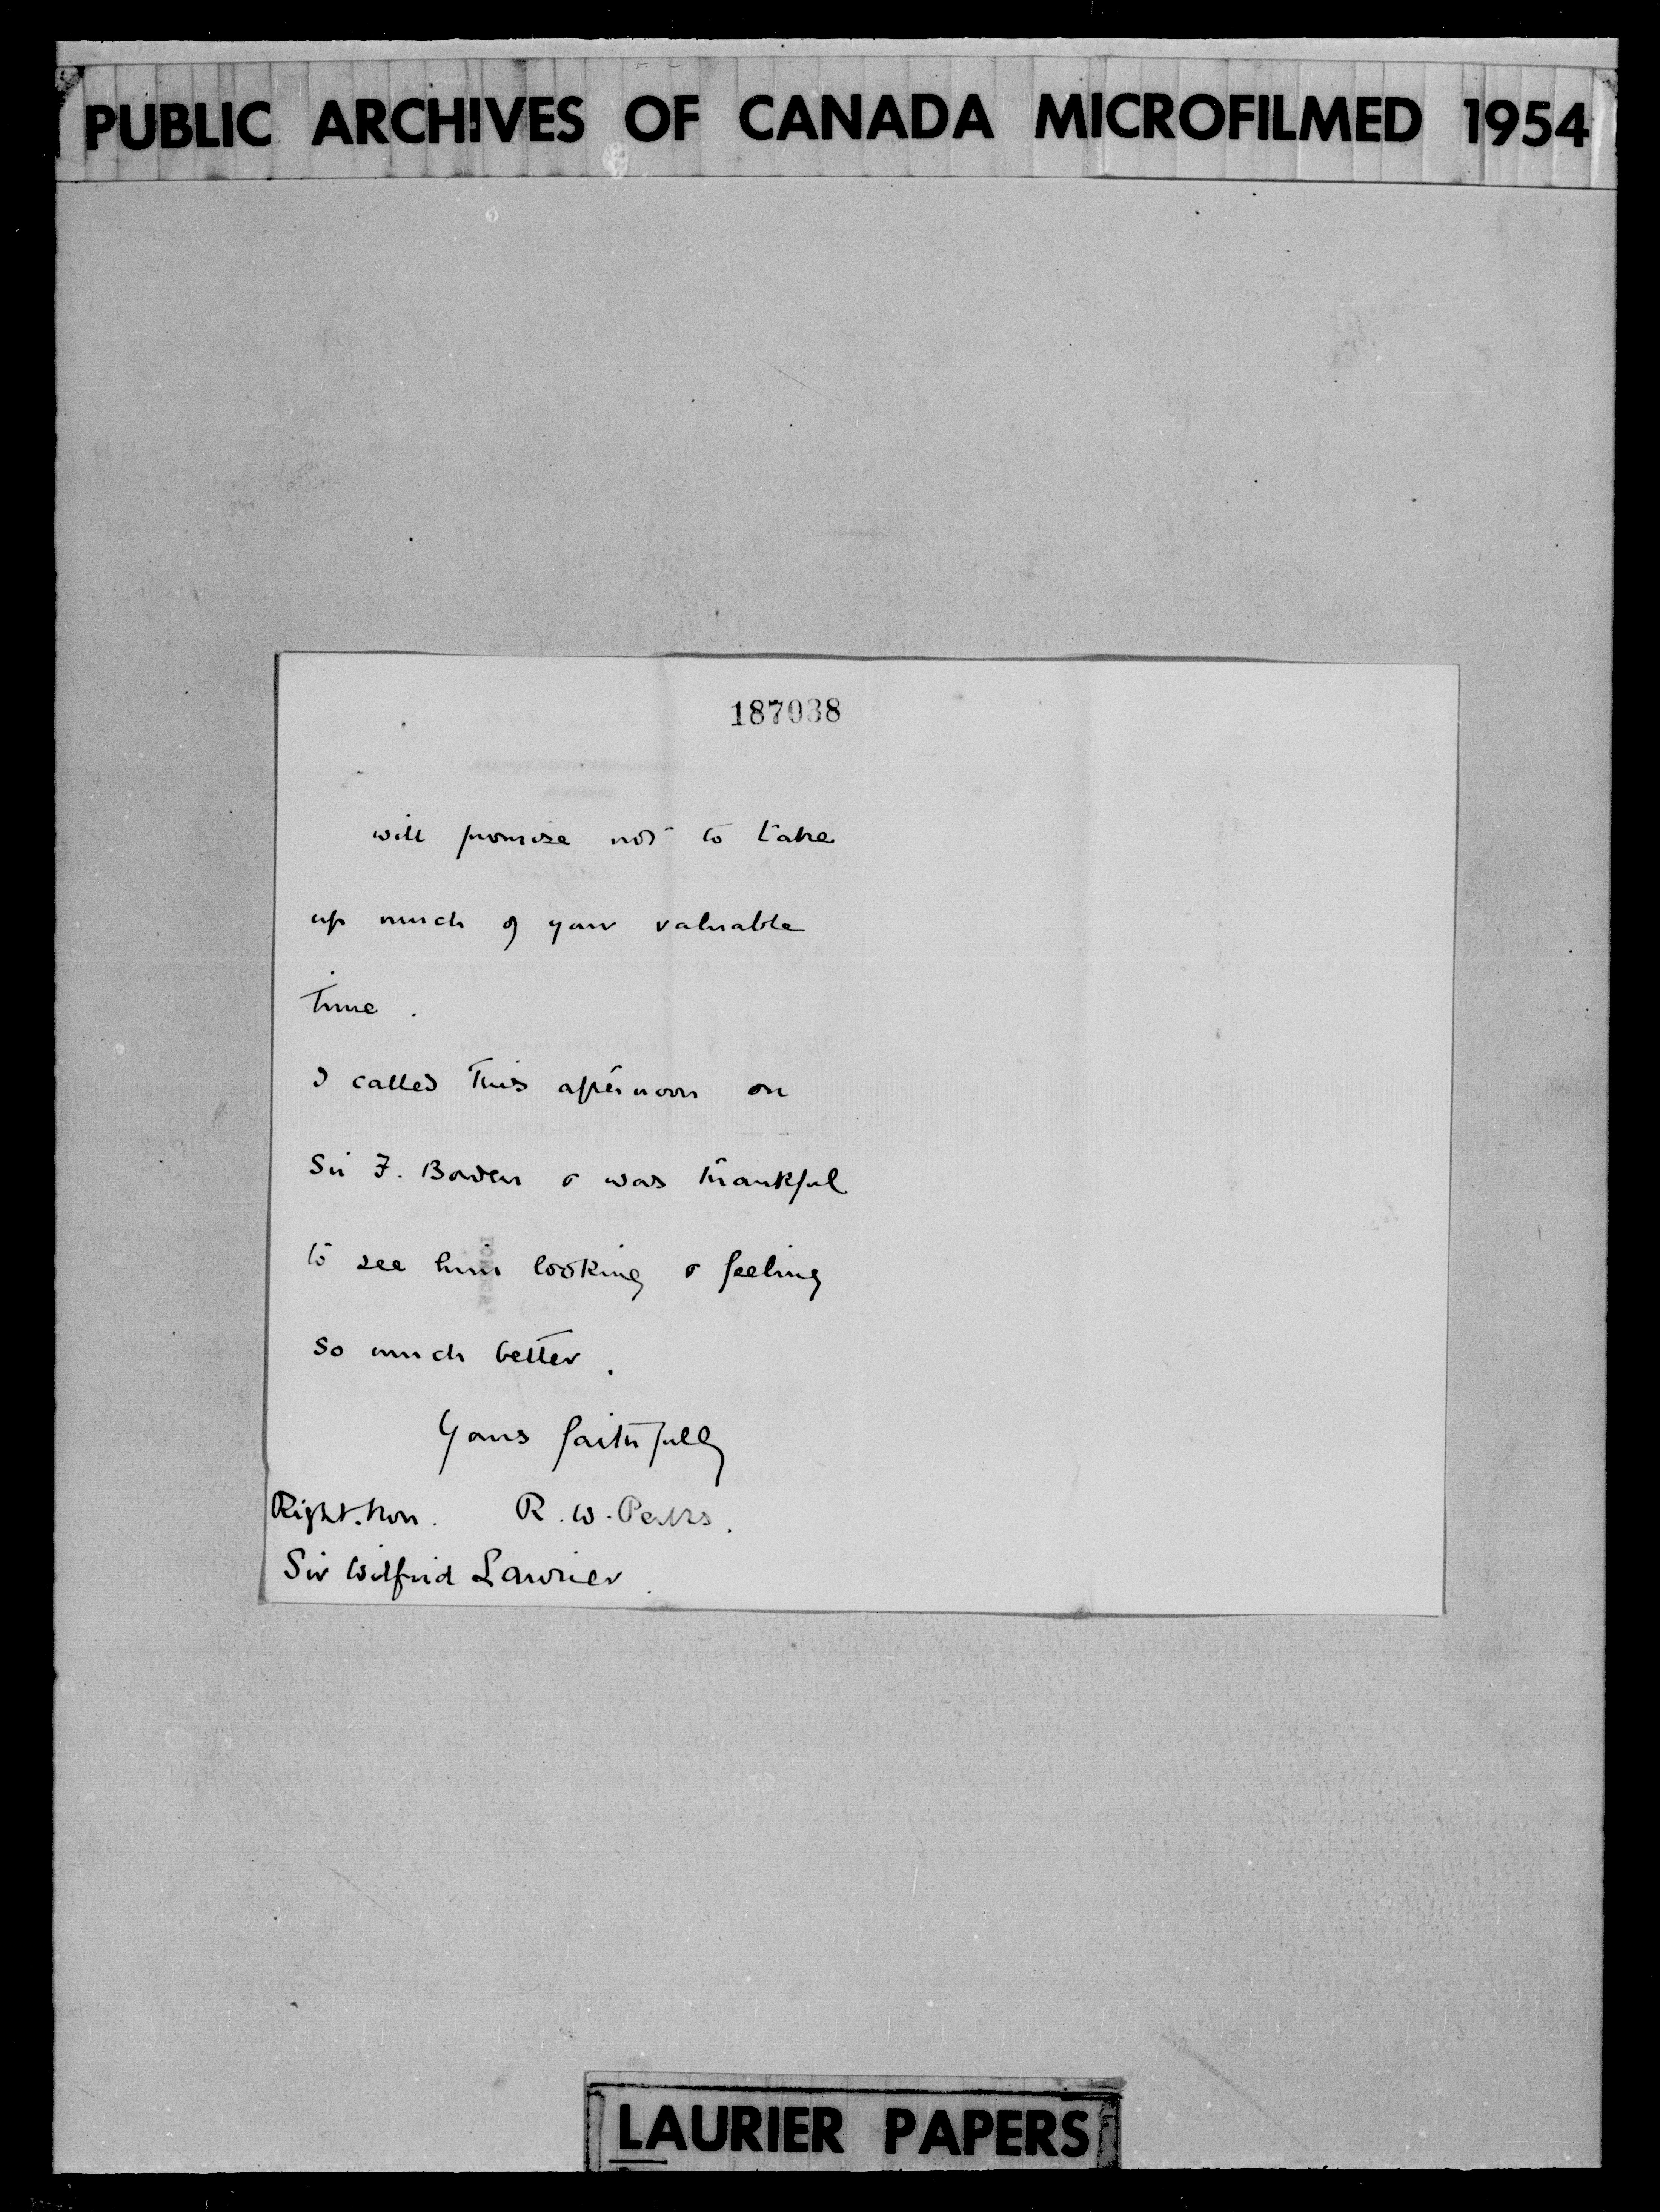 PUBLIC ARCHIVES OF CANADA MICROFILMED 1954
187038
will promise not to take
up much of your valuable
time.
I called this afternoon on
Sir F. Borden & was thankful
to see him looking & feeling
so much better.
Yours faithfully
Right. Hon. R. W. Perks.
Sir Wilfrid Laurier.
LAURIER PAPERS